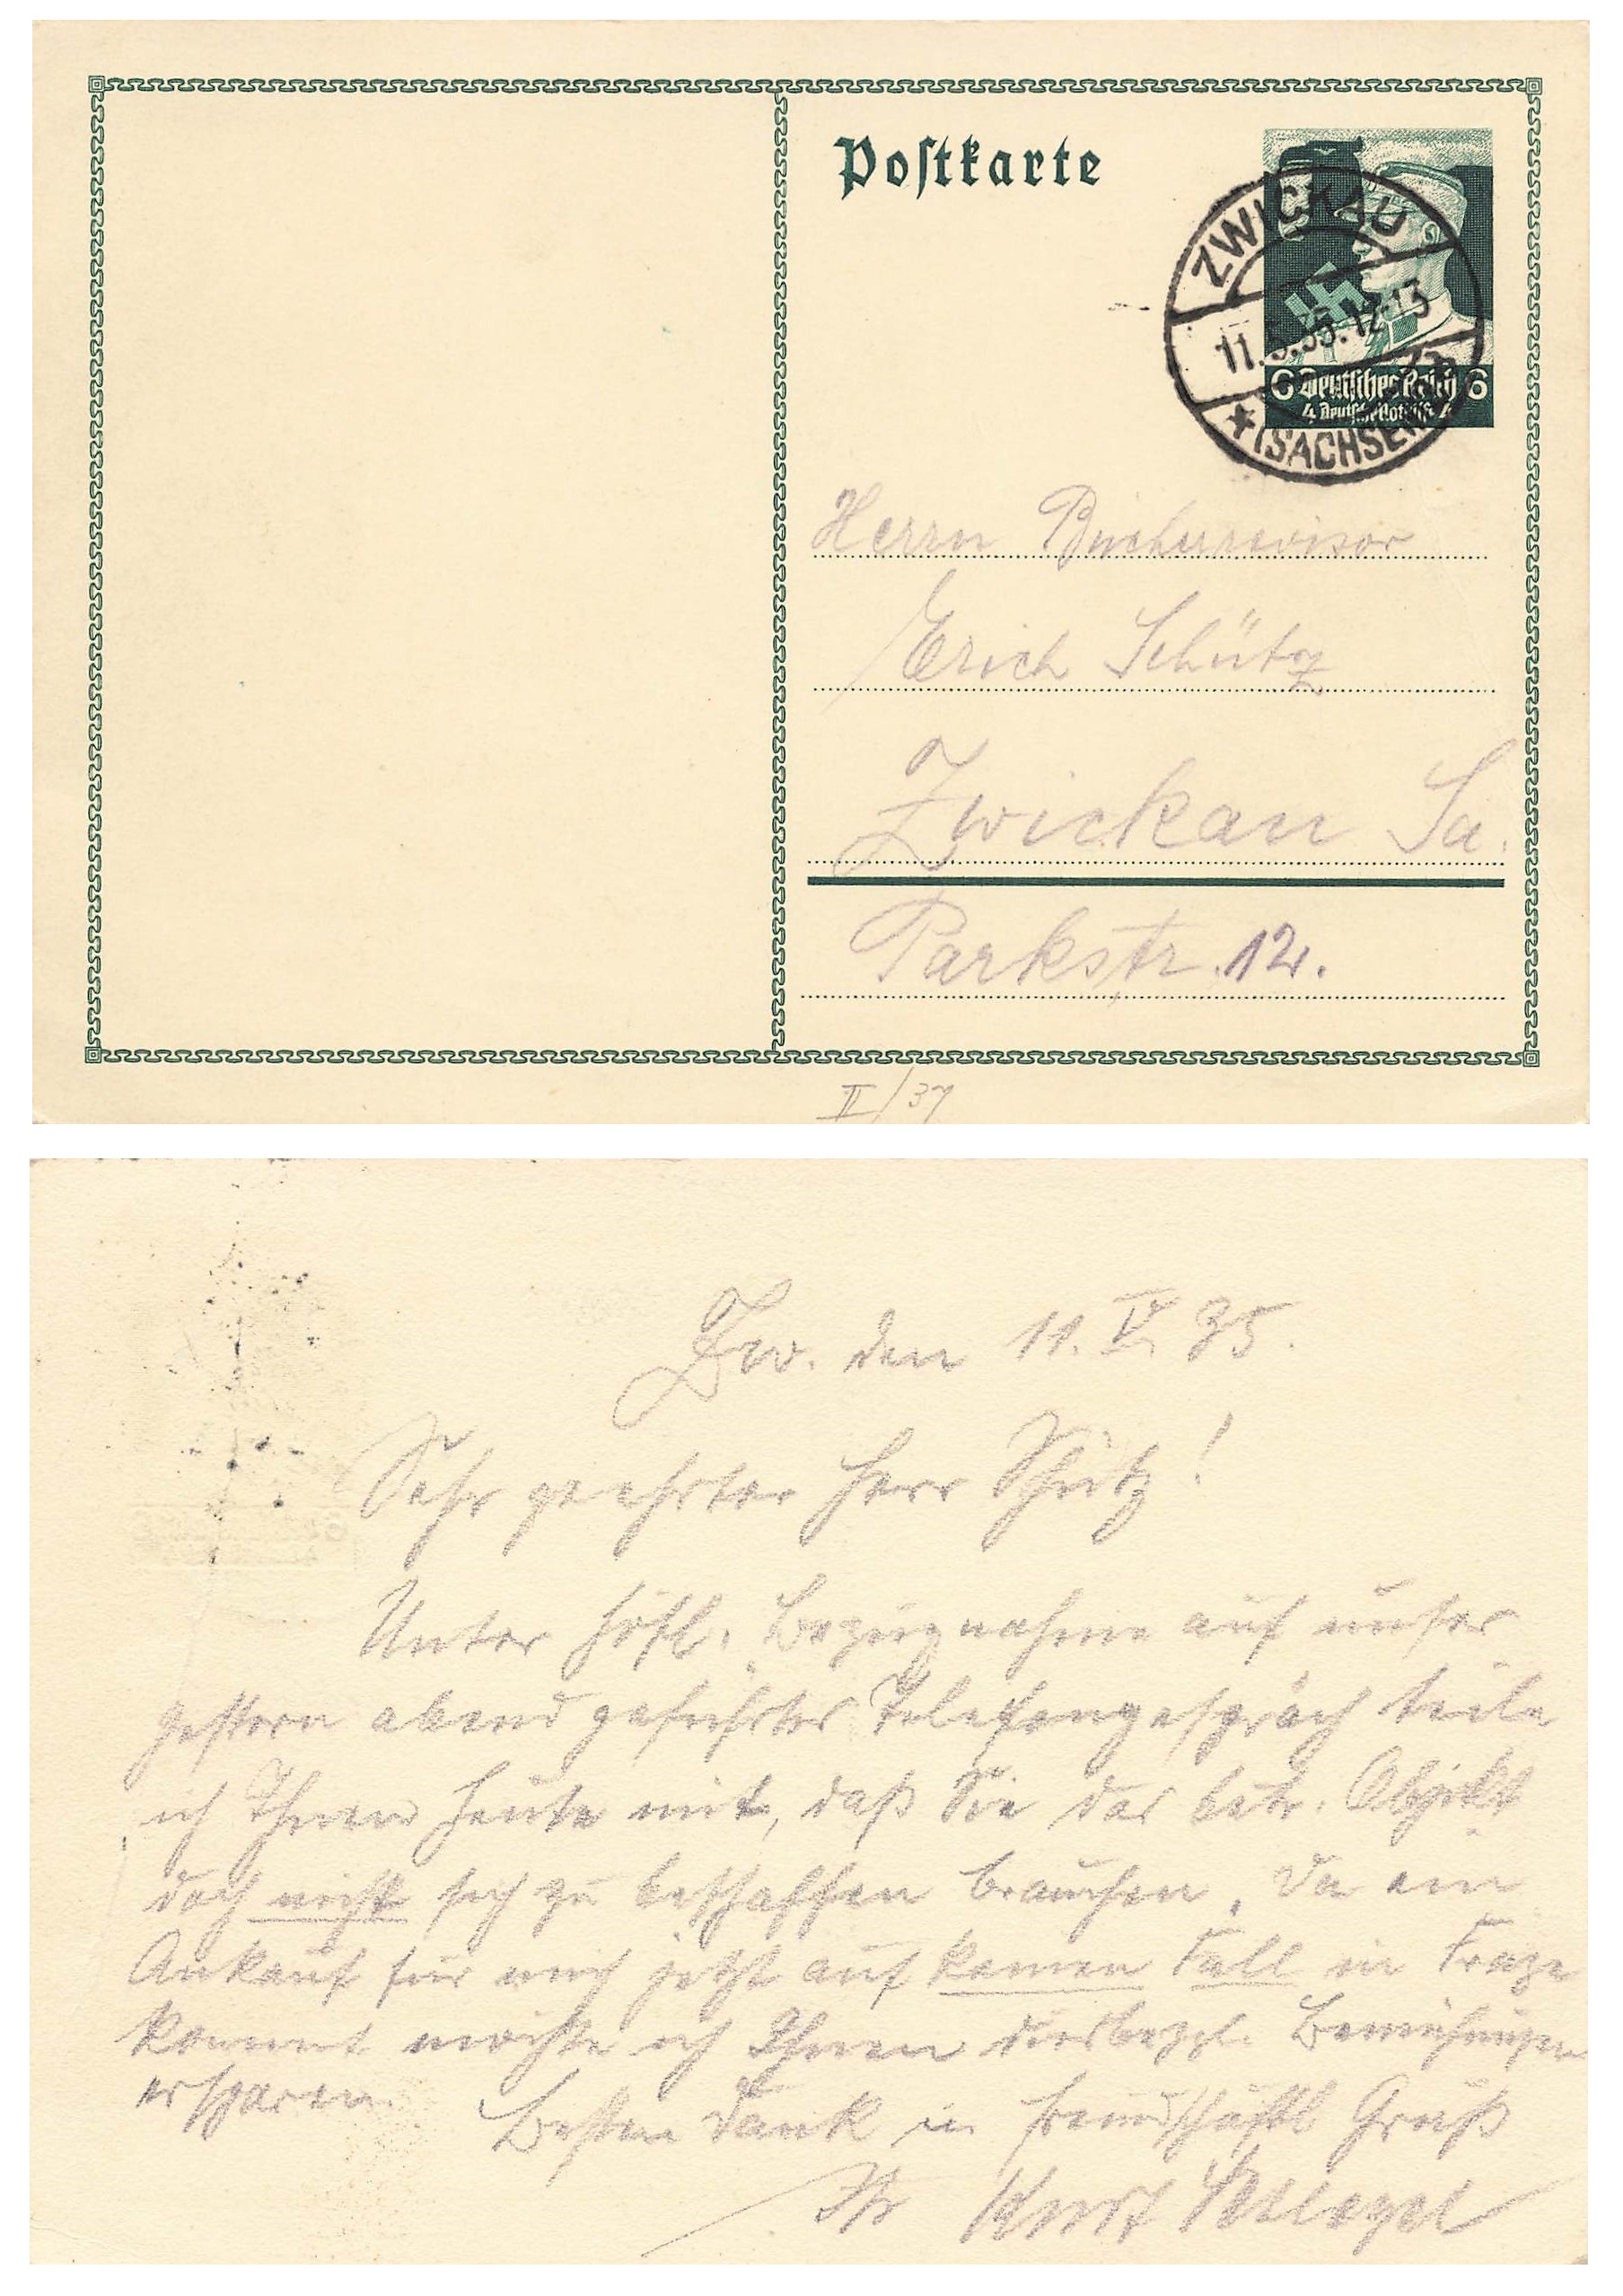 Postkarte
ZWICKAU
11.5.35.12-13
* (SACHSEN)
6 Deutsches Reich 6
4 Deutsche Nothilfe 4
Herrn Bücherrevisor
Erich Schütz
Zwickau Sa.
Parkstr. 12.
II/37
Zw. den 11. V. 35.
Sehr geehrter Herr Schütz!
Unter höfl. Bezugnahme auf unser
gestern abend geführtes Telefongespräch teile
ich Ihnen heute mit, daß Sie das betr. Objekt
doch nicht sich zu beschaffen brauchen. Da ein
Ankauf für mich jetzt auf keinen Fall in Frage
kommt möchte ich Ihnen diesbezgl. Bemühungen
ersparen.
Besten Dank u. freundschaftl Gruß
Ihr Kurt Schlegel